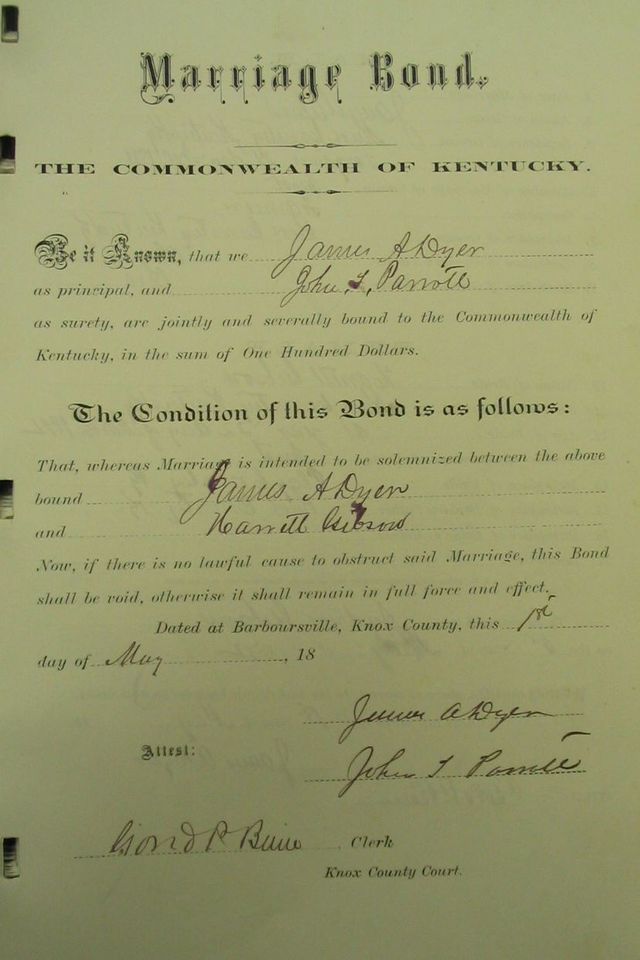 Marriage Bond.
THE COMMONWEALTH OF KENTUCKY.
Be it Known, that we James A Dyer
as principal, and John T. Parrott
as surety, are jointly and severally bound to the Commonwealth of
Kentucky, in the sum of One Hundred Dollars.
The Condition of this Bond is as follows:
That, whereas Marriage is intended to be solemnized between the above
bound James A Dyer
and Harrett Gibson
Now, if there is no lawful cause to obstruct said Marriage, this Bond
shall be void, otherwise it shall remain in full force and effect.
Dated at Barboursville, Knox County, this 1st
day of May, 18
James A Dyer
Attest:
John T Parrott
Clerk
Knox County Court.